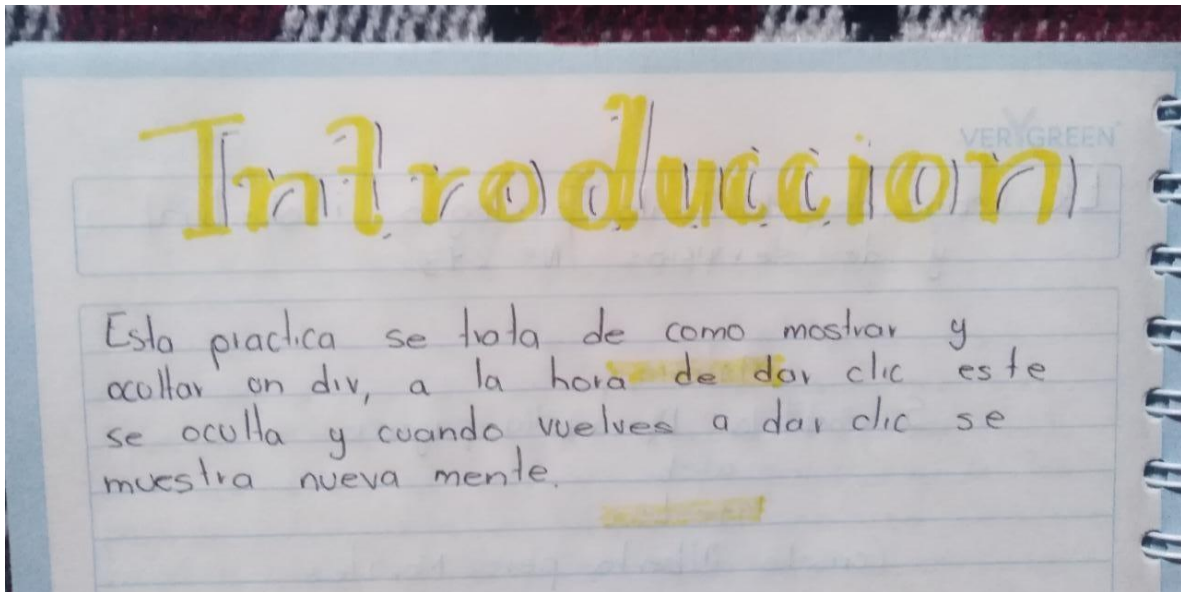 VERYGREEN
Introduccion
Esta practica se trata de como mostrar y
ocultar un div, a la hora de dar clic este
se oculta y cuando vuelves a dar clic se
muestra nueva mente.